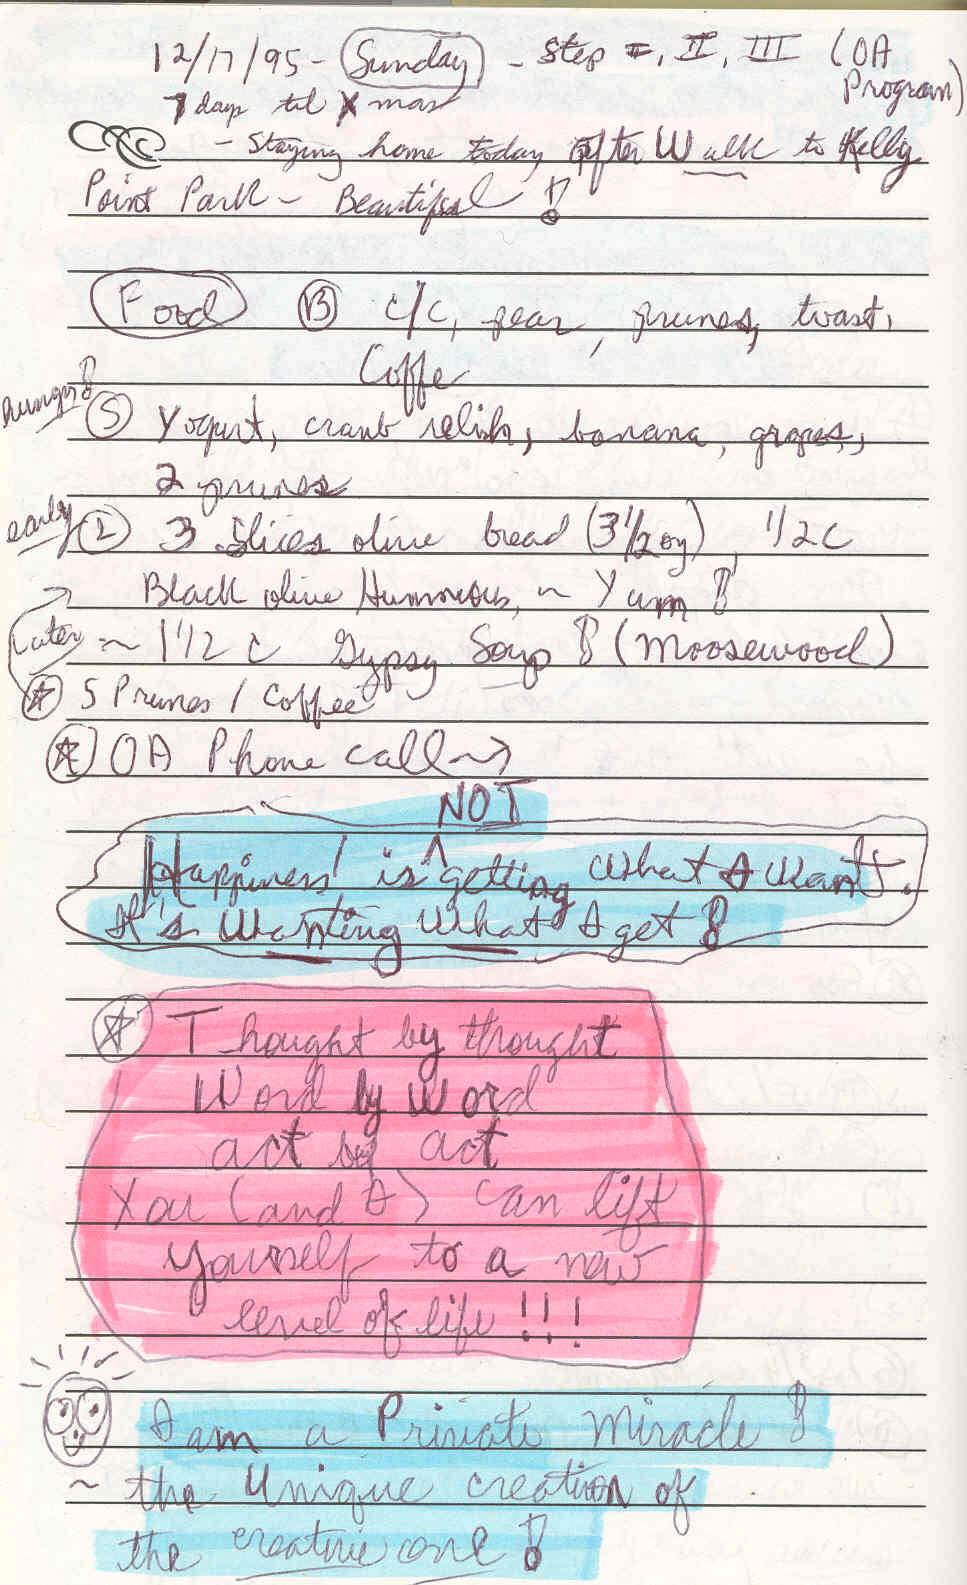 12/17/95 - Sunday - Step I, II, III (OA Program)
7 days til Xmas
- Staying home today after Walk to Kelly
Point Park - Beautiful!
Food B c/c, pear, prunes, toast,
Coffe
hungry! S Yogurt, cranb relish, banana, grapes,
2 prunes
early L 3 Slices olive bread (3 1/2 oz), 1/2 c
Black olive Hummous, ~ Yum!
Later ~ 1 1/2 c Gypsy Soup! (Moosewood)
5 Prunes / Coffee
OA Phone call →
NOT
Happiness is ^ getting What I Want.
It's Wanting What I get!
Thought by thought
Word by Word
act by act
You (and I) can lift
yourself to a new
level of life!!!
I am a Private Miracle!
~ the Unique creation of
the creative one!